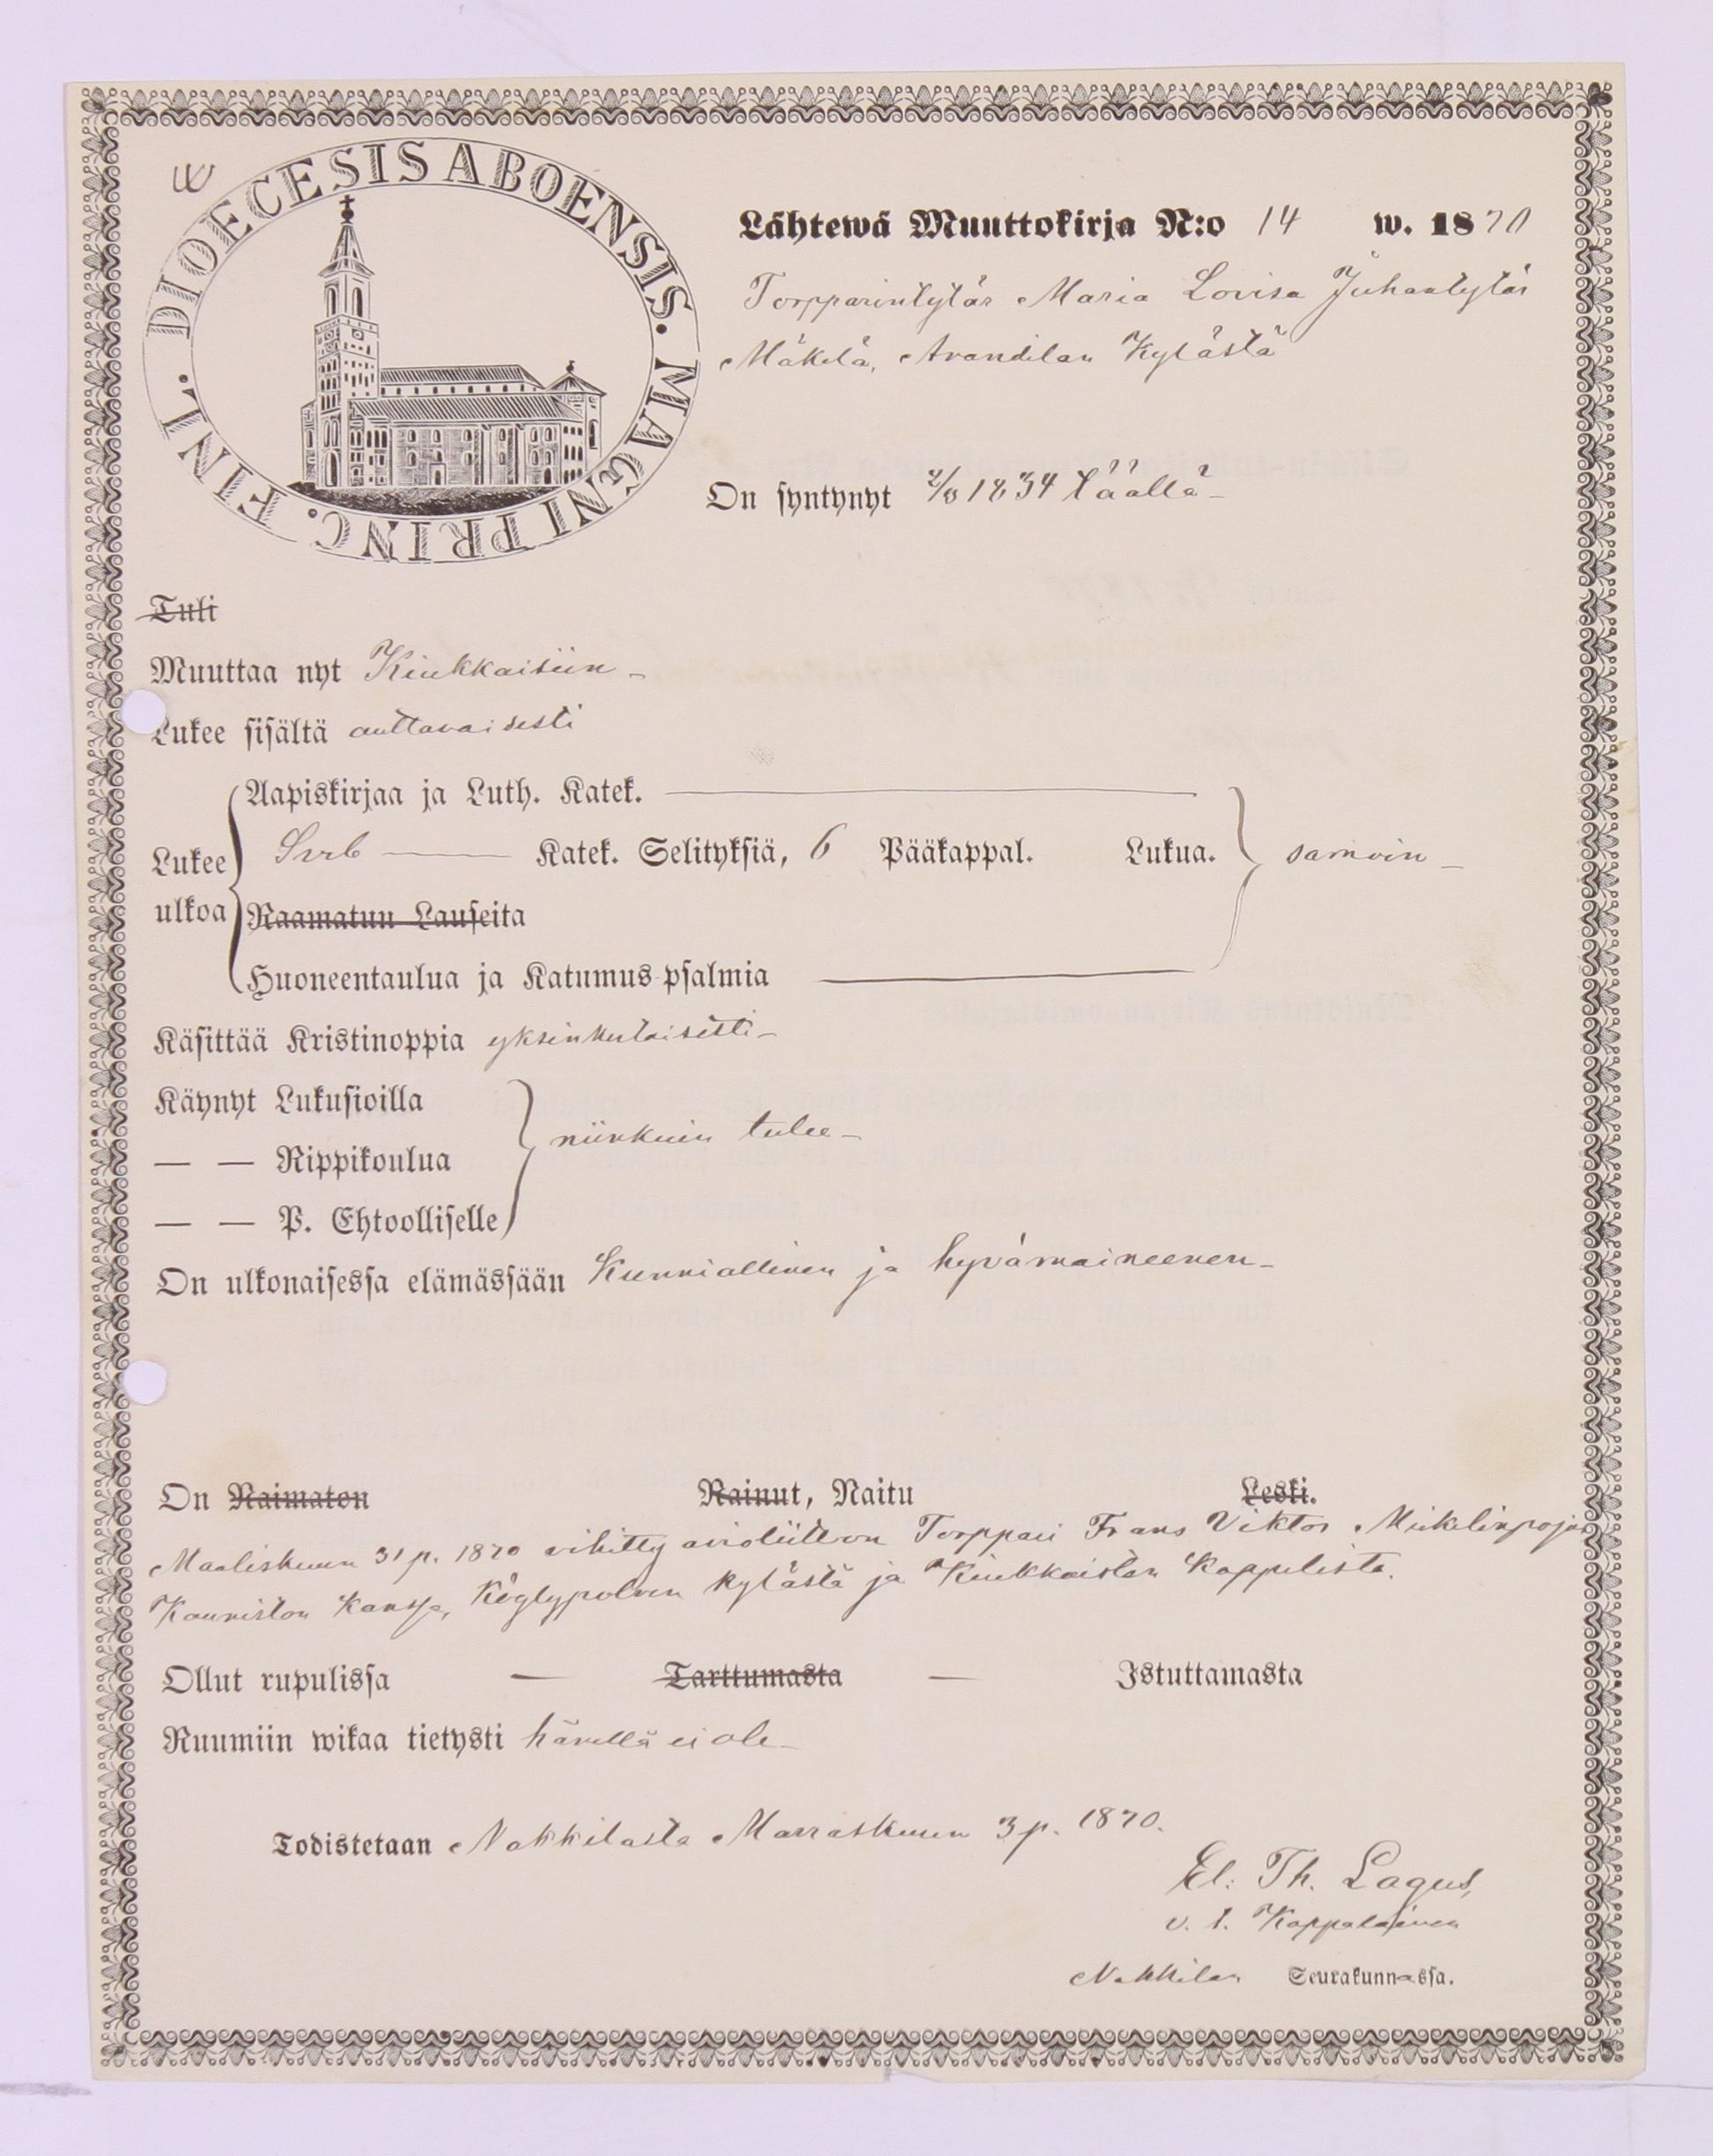 DIOECESIS ABOENSIS. MAGNI PRINC. FINL.
Lähtewä Muuttokirja N:o 14 w. 1870
Torpparintytär Maria Lovisa Juhantytär
Mäkelä, Arandilan Kylästä
On syntynyt 2/8 1834 täällä
Tuli
Muuttaa nyt Kiukkaisiin
Lukee sisältä auttavaisesti
Aapiskirjaa ja Luth. Katek.
Lukee Svrb Katek. Selityksiä, 6 Pääkappal. Lukua. samoin
ulkoa Raamatun Lauseita
Huoneentaulua ja Katumus-psalmia
Käsittää Kristinoppia yksinkertaisesti
Käynyt Lukusioilla
— — Rippikoulua niinkuin tulee
— — P. Ehtoolliselle
On ulkonaisessa elämässään Kunniallinen ja hyvämaineenen
On Naimaton Nainut, Naitu Leski.
Maaliskuun 31 p. 1870 vihitty avioliittoon Torppari Frans Viktor Mickelinpojan
Kanniston kanssa, Köylypolven kylästä ja Kiukkaisten Kappelista.
Ollut rupulissa — Tarttumasta — Istuttamasta
Ruumiin wikaa tietysti hänellä ei ole
Todistetaan Nakkilasta Marraskuun 3 p. 1870.
El. Th. Lagus,
v. t. Kappalainen
Nakkilan Seurakunnassa.